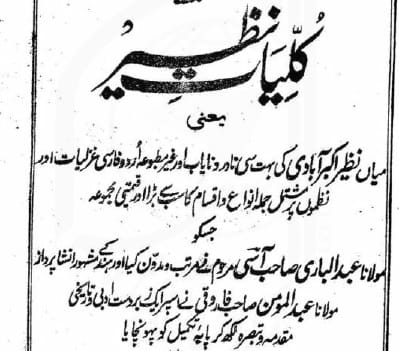 کلیات نظیر
یعنی
میاں نظیر اکبر آبادی کی بہت سی نادر و نایاب اور غیر مطبوعہ اُردو فارسی غزلیات اور
نظموں پر مشتمل جملہ انواع و اقسام کا سب سے بڑا اور قیمتی مجموعہ
جسکو
مولانا عبد الباری صاحب آسی مرحوم نے مرتب و مدون کیا اور ہند کے مشہور انشا پرداز
مولانا عبد المومن صاحب فاروقی نے اسپر ایک زبردست ادبی و تاریخی
مقدمہ و تبصرہ لکھ کر پایۂ تکمیل کو پہونچایا